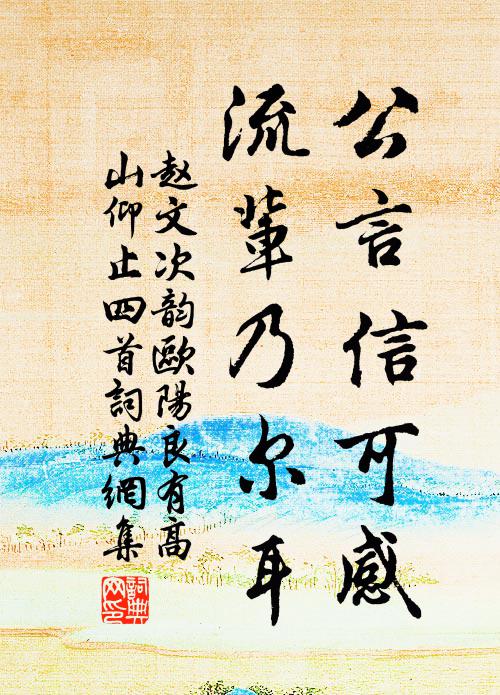 公言信可感
流輩乃尔耳
赵文次韵歐陽良有高
山仰止四首詞典網集
詞典